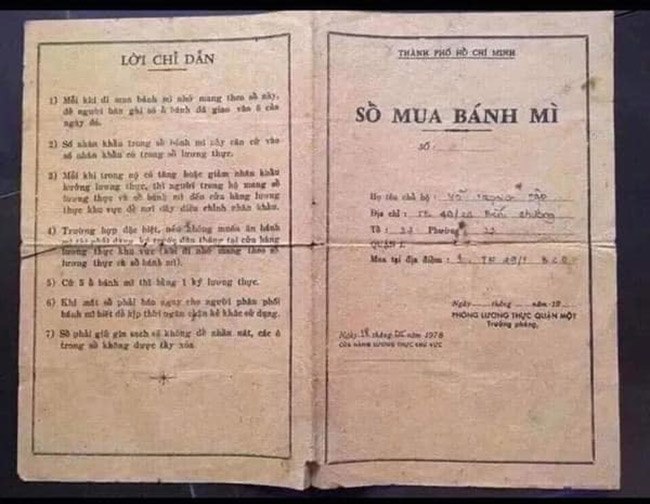 LỜI CHỈ DẪN
1) Mỗi khi đi mua bánh mì nhớ mang theo sổ này,
để người bán ghi số ổ bánh đã giao vào ô của
ngày đó.
2) Số nhân khẩu trong sổ bánh mì này căn cứ vào
số nhân khẩu có trong sổ lương thực.
3) Mỗi khi trong hộ có tăng hoặc giảm nhân khẩu
hưởng lương thực, thì người trong hộ mang sổ
lương thực và sổ bánh mì đến cửa hàng lương
thực khu vực để nơi đây điều chỉnh nhân khẩu.
4) Trường hợp đặc biệt, nếu không muốn ăn bánh
mì thì phải đăng ký trước đầu tháng tại cửa hàng
lương thực khu vực (khi đi nhớ mang theo sổ
lương thực và sổ bánh mì).
5) Cứ 5 ổ bánh mì thì bằng 1 ký lương thực.
6) Khi mất sổ phải báo ngay cho người phân phối
bánh mì biết để kịp thời ngăn chặn kẻ khác sử dụng.
7) Sổ phải giữ gìn sạch sẽ không để nhàu nát, các ô
trong sổ không được tẩy xóa.
THÀNH PHỐ HỒ CHÍ MINH
SỔ MUA BÁNH MÌ
SỐ:
Họ tên chủ hộ :
Địa chỉ :
Tổ : 22 Phường : 22
QUẬN I
Mua tại địa điểm :
Ngày tháng năm 19
PHÒNG LƯƠNG THỰC QUẬN MỘT
Trưởng phòng,
Ngày tháng năm 1978
CỬA HÀNG LƯƠNG THỰC KHU VỰC